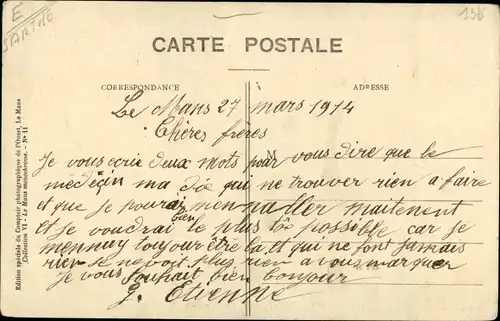 E
SARTHE
136
CARTE POSTALE
CORRESPONDANCE
ADRESSE
Edition spéciale du Comptoir photographique de l'Ouest, Le Mans
Collection VI - Le Mans - N° 11
Le Mans 27 mars 1914
Chères frères
Je vous ecrie deux mots pour vous dire que le
médeçin ma dix qui ne trouver rien a faire
et que je pourai men naller maitenent
et je voudrai bien le plus tôt possible car je
mennuy toujour être la et qui ne font jamais
rien je ne voit plus rien a vous marquer
Je vous souhait bien bonjour
J. Etienne